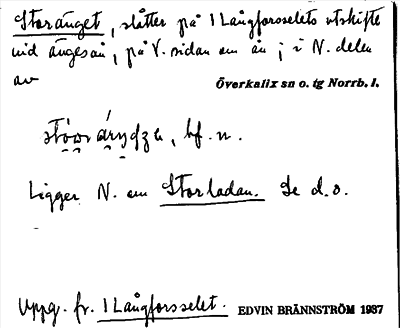 Storänget, slåtter på 1 Långforsselets utskifte
vid Ängesån, på V. sidan om ån; i N. delen
av
Överkalix sn o. tg Norrb. l.
bf. n.
Ligger N. om Storladan. Se d. o.
Uppg. fr. 1 Långforsselet. EDVIN BRÄNNSTRÖM 1937